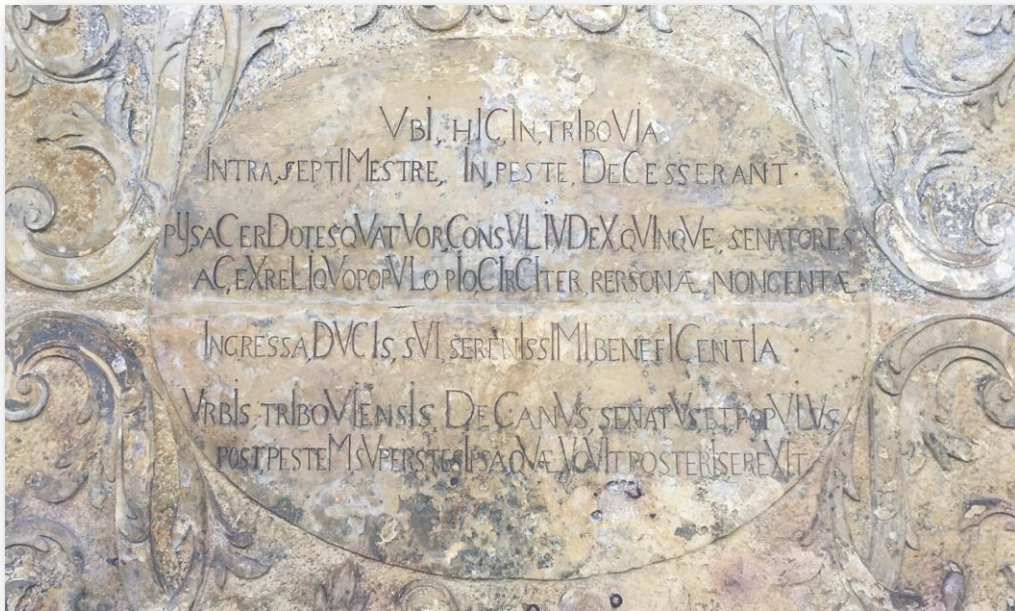 VBI, HIC IN, TRIBOVIA
INTRA, SEPTIMESTRE, IN, PESTE, DECESSERANT.
PIJ SACERDOTES QVATVOR, CONSVL IVDEX, QVINQVE, SENATORES
AC, EX RELIQVO POPVLO PIO, CIRCITER RERSONÆ, NONGENTÆ.
INGRESSA, DVCIS, SVI, SERENISSIMI, BENEFICENTIA
VRBIS, TRIBOVIENSIS, DECANVS, SENATVS, ET, POPVLVS
POST, PESTEM SVPERSTES, IPSA QVÆ, VOVIT POSTERIS EREXIT.